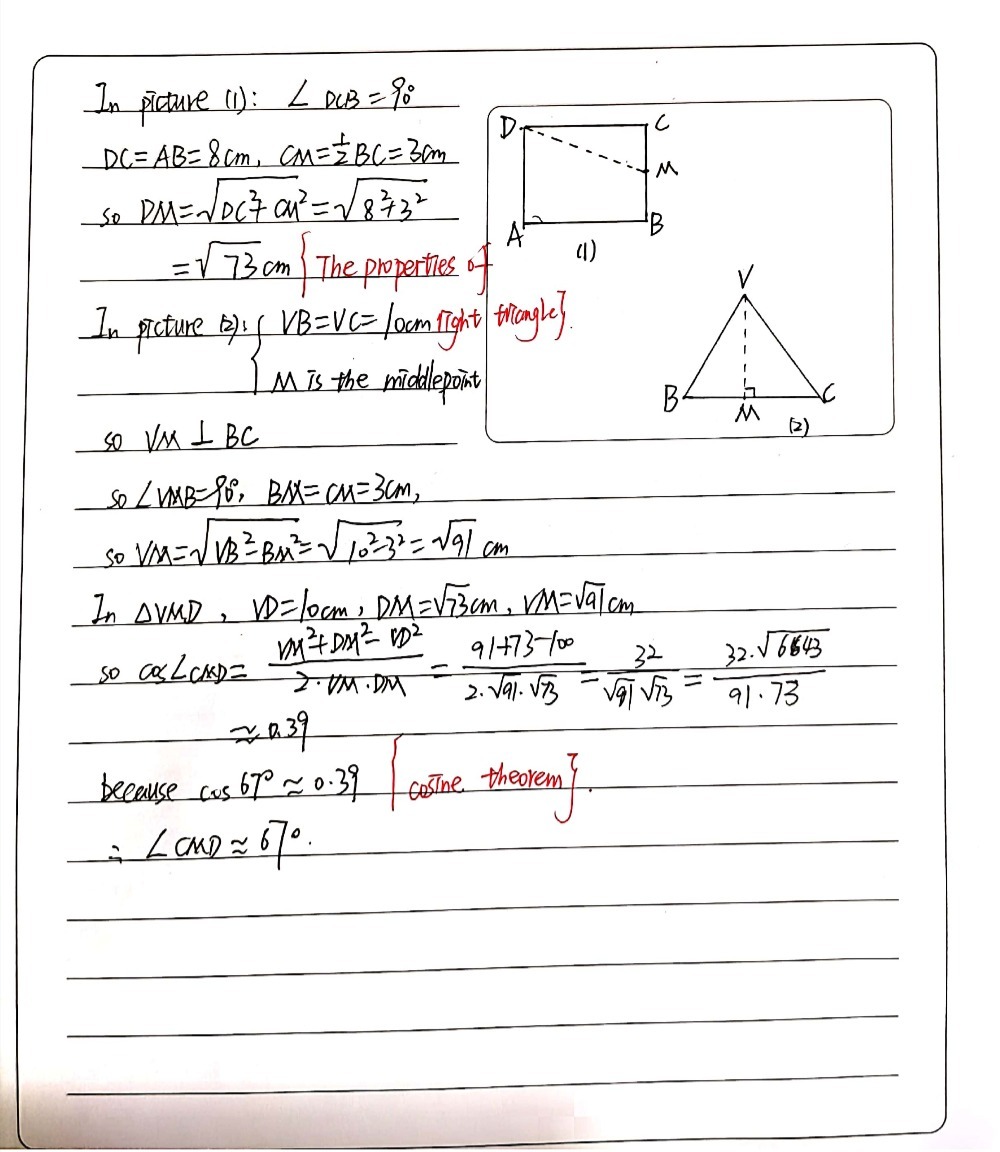 In picture (1): ∠DCB = 90°
DC = AB = 8cm, CM = 1/2 BC = 3cm
so DM = √(DC²+CM²) = √(8²+3²)
= √73 cm {The properties of
right triangle}.
In picture (2): { VB = VC = 10cm
M is the middlepoint
so VM ⊥ BC
so ∠VMB = 90°, BM = CM = 3cm,
so VM = √(VB²-BM²) = √(10²-3²) = √91 cm
In △VMD, VD = 10cm, DM = √73 cm, VM = √91 cm
so cos∠CMD = (VM²+DM²-VD²)/(2·VM·DM) = (91+73-100)/(2·√91·√73) = 32/(√91 √73) = (32·√6643)/(91·73)
≈ 0.39
because cos 67° ≈ 0.39 {cosine theorem}.
∴ ∠CMD ≈ 67°.
D C
M
A B
(1)
V
B M C
(2)